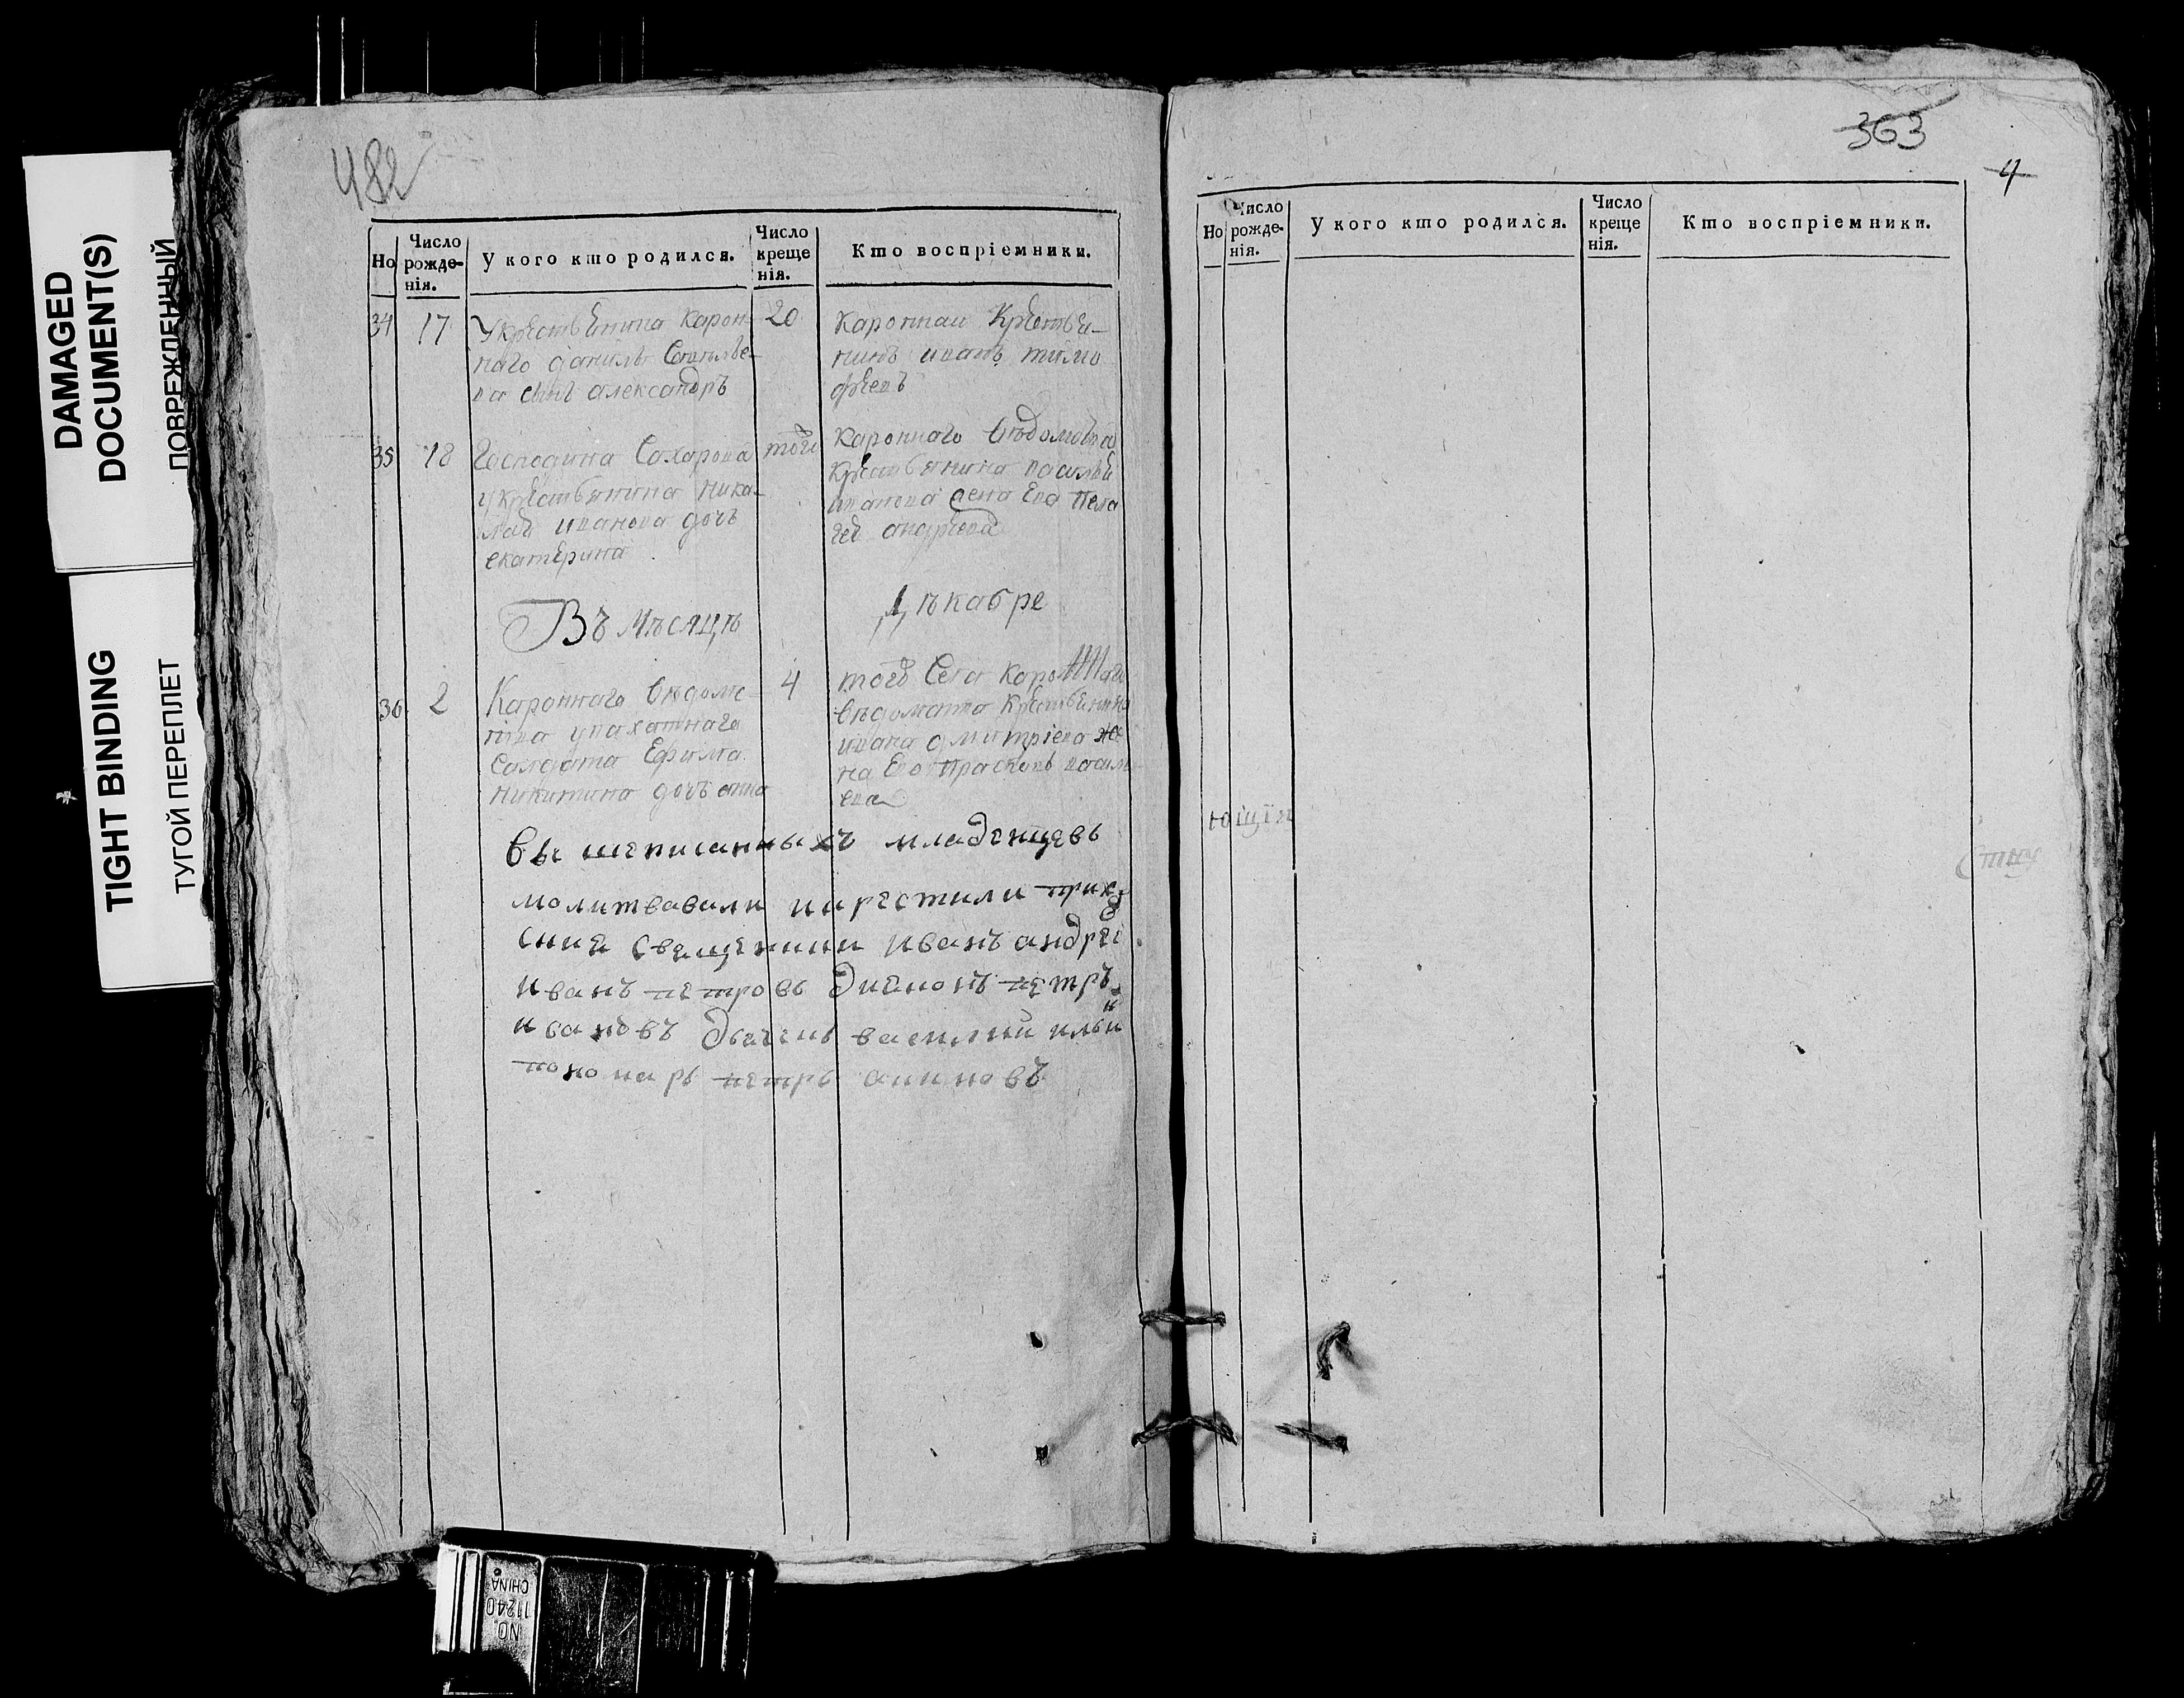 DAMAGED
DOCUMENT(S)
ПОВРЕЖДЕННЫЙ
TIGHT BINDING
ТУГОЙ ПЕРЕПЛЕТ
482
Но
Число рожденія.
У кого кто родился.
Число крещенія.
Кто воспріемники.
34 17
Укрестьенина карон-
наго данилы
ва сынъ александръ
20
каронная крестьени-
иванъ тимо
феевъ
35 18
Господина Сахарова
укрестьянина нико-
лая иванова дочъ
екатерина
того
каронного вѣдомства
крестьянина василья
иванова жена ева пела
гея андреева
Въ мѣсяцѣ
Дѣкабре
36 2
Каронного вѣдомс-
тва упахатнаго
Солдата Ефима
никитина дочъ анна
4
того Села каронаго
вѣдомства крестьенина
ивана дмитріева же
на Ево прасковь василь
ева
вы шеписанныхъ младенцевъ
молитвавали икрестили
свещеники иванъ андреі
иванъ петровъ диаконъ петръ
ивановъ дьячекъ василий ильи
н
пономарь петръ
363
4
Но
Число рожде-
нія.
У кого кто родился.
Число
креще
нія.
Кто воспріемники.
NO.
11240
CHINA